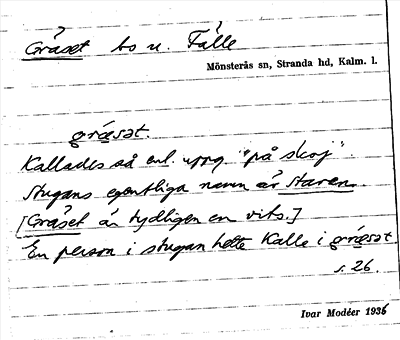 Gräset bs u. Fälle
Mönsterås sn, Stranda hd, Kalm. l.
gräsət.
Kallades så enl. uppg. "på skoj".
Stugans egentliga namn är Staren.
[Gräset är tydligen en vits.]
En person i stugan hette Kalle i gräsət
s. 26.
Ivar Modéer 1936